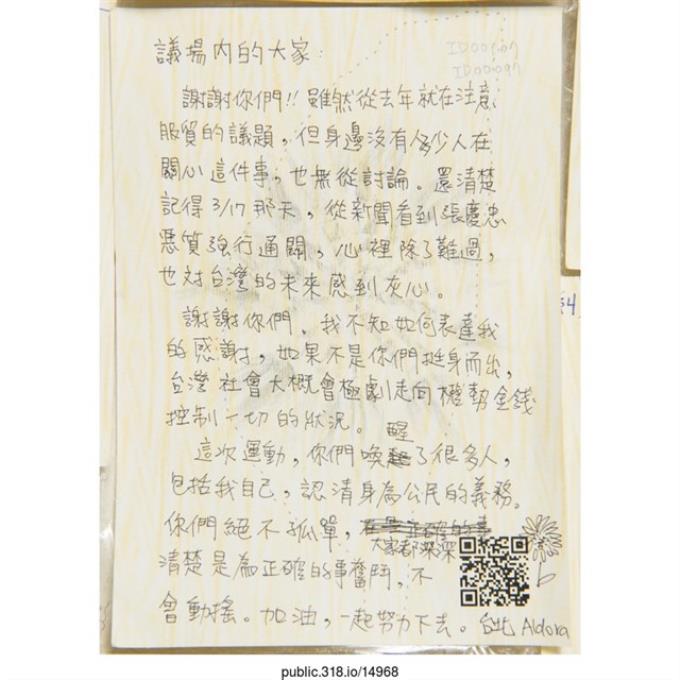 議場內的大家：
ID00907
ID00097
謝謝你們!! 雖然從去年就在注意
服貿的議題，但身邊沒有多少人在
關心這件事，也無從討論。還清楚
記得 3/17 那天，從新聞看到張慶忠
惡質強行通關，心裡除了難過，
也對台灣的未來感到灰心。
謝謝你們，我不知如何表達我
的感謝，如果不是你們挺身而出，
台灣社會大概會極劇走向權勢金錢
控制一切的狀況。
這次運動，你們喚醒了很多人，
包括我自己，認清身為公民的義務。
你們絕不孤單，大家都深深
清楚是為正確的事奮鬥，不
會動搖。加油，一起努力下去。台北 Aldora
public.318.io/14968